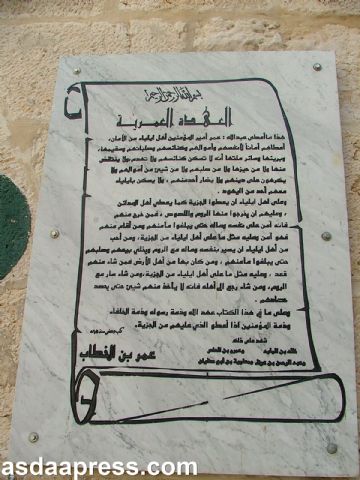 بسم الله الرحمن الرحيم
العهدة العمرية
هذا ما أعطى عبدالله : عمر أمير المؤمنين أهل ايلياء من الأمان،
أعطاهم أماناً لأنفسهم وأموالهم وكنائسهم وصلبانهم وسقيمها،
وبريئها وسائر ملتها أنه لا تسكن كنائسهم ولا تهدم ولا ينتقض
منها ولا من حيزها ولا من صلبهم ولا من شيئ من أموالهم ولا
يكرهون على دينهم ولا يضار أحد منهم ، ولا يسكن بايلياء
معهم أحد من اليهود .
وعلى أهل ايلياء أن يعطوا الجزية كما يعطي أهل المدائن
، وعليهم أن يخرجوا منها الروم واللصوص ، فمن خرج منهم
فانه آمن على نفسه وماله حتى يبلغوا مأمنهم ومن أقام منهم
فهو آمن وعليه مثل ما على أهل ايلياء من الجزية ، ومن أحب
من أهل ايلياء أن يسير بنفسه وماله مع الروم ويخلي بيعهم وصلبهم
حتى يبلغوا مأمنهم ، ومن كان بها من أهل الأرض فمن شاء منهم
قعد ، وعليه مثل ما على أهل ايلياء من الجزية، ومن شاء سار مع
الروم ، ومن شاء رجع الى أهله فانه لا يأخذ منهم شيئ حتى يحصد
حصادهم .
وعلى ما في هذا الكتاب عهد الله وذمة رسوله وذمة الخلفاء
وذمة المؤمنين اذا أعطوا الذي عليهم من الجزية.
شهد على ذلك
خالد بن الوليد وعمرو بن العاص
وعبد الرحمن بن عوف ومعاوية بن أبي سفيان
عمر بن الخطاب
asdaapress.com